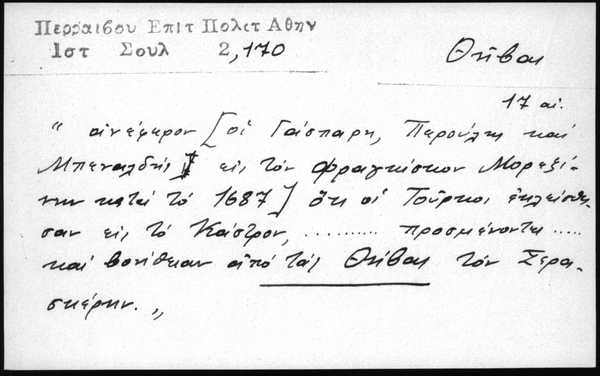 Περραιβου Επιτ Πολιτ Αθην
Ιστ Σουλ 2,170
Θήβαι
17 αι.
"ἀνέφερον [οἱ Γάσπαρη, Περούλης καὶ
Μπεναλδής] εἰς τὸν Φραγκίσκον Μοροζί-
νην κατὰ τὸ 1687] ὅτι οἱ Τοῦρκοι ἐκλείσθη-
σαν εἰς τὸ Κάστρον, .......... προσμένοντες .....
καὶ βοήθειαν ἀπὸ τὰς Θήβας τὸν Σερα-
σκέρην."